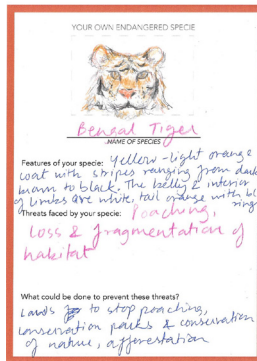 YOUR OWN ENDANGERED SPECIE
Bengal Tiger
NAME OF SPECIES
Features of your specie: Yellow-light orange
coat with stripes ranging from dark
brown to black. The belly & interior
of limbes are white, tail orange with bl
rings
Threats faced by your specie: Poaching,
Loss & fragmentation of
habitat
What could be done to prevent these threats?
Laws to stop poaching,
conservation parks & conservation
of nature, afforestation